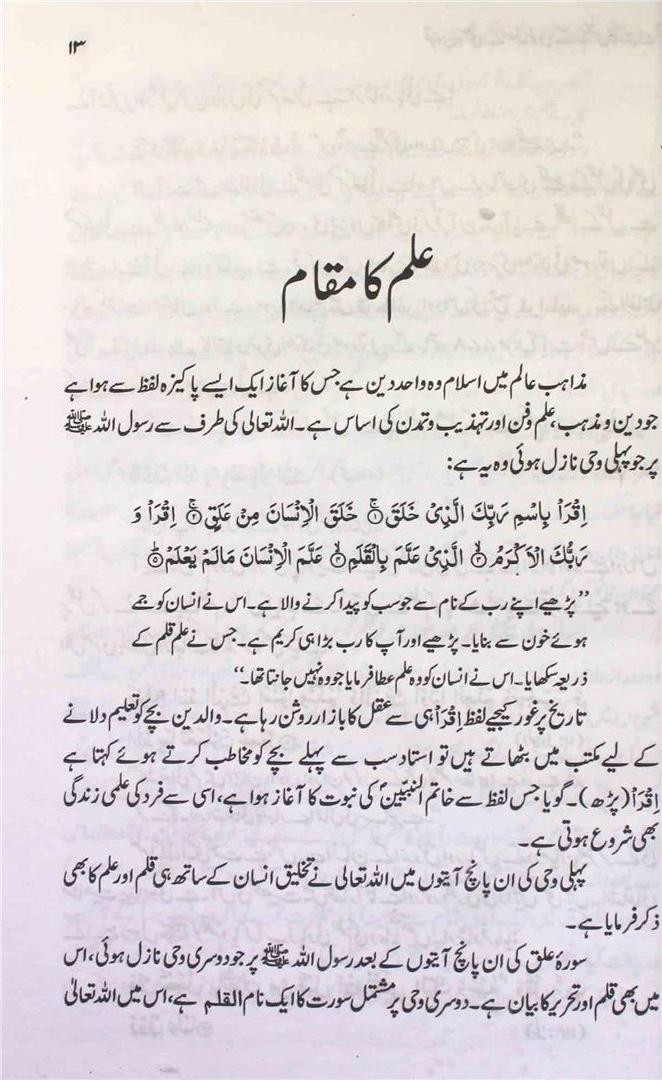 ۱۳
علم کا مقام
مذاہب عالم میں اسلام وہ واحد دین ہے جس کا آغاز ایک ایسے پاکیزہ لفظ سے ہوا ہے
جو دین و مذہب، علم و فن اور تہذیب و تمدن کی اساس ہے۔ اللہ تعالی کی طرف سے رسول اللہ ﷺ
پر جو پہلی وحی نازل ہوئی وہ یہ ہے:
اِقْرَاْ بِاسْمِ رَبِّكَ الَّذِیْ خَلَقَ ۝۱ خَلَقَ الْاِنْسَانَ مِنْ عَلَقٍ ۝۲ اِقْرَاْ وَ
رَبُّكَ الْاَكْرَمُ ۝۳ الَّذِیْ عَلَّمَ بِالْقَلَمِ ۝۴ عَلَّمَ الْاِنْسَانَ مَالَمْ یَعْلَمْ ۝۵
”پڑھیے اپنے رب کے نام سے جو سب کو پیدا کرنے والا ہے۔ اس نے انسان کو جمے
ہوئے خون سے بنایا۔ پڑھیے اور آپ کا رب بڑا ہی کریم ہے۔ جس نے علم قلم کے
ذریعہ سکھایا۔ اس نے انسان کو وہ علم عطا فرمایا جو وہ نہیں جانتا تھا۔“
تاریخ پر غور کیجیے لفظ اِقْرَاْ ہی سے عقل کا بازار روشن رہا ہے۔ والدین بچے کو تعلیم دلانے
کے لیے مکتب میں بٹھاتے ہیں تو استاد سب سے پہلے بچے کو مخاطب کرتے ہوئے کہتا ہے
اِقْرَاْ (پڑھ)۔ گویا جس لفظ سے خاتم النبیینؐ کی نبوت کا آغاز ہوا ہے، اسی سے فرد کی علمی زندگی
بھی شروع ہوتی ہے۔
پہلی وحی کی ان پانچ آیتوں میں اللہ تعالی نے تخلیق انسان کے ساتھ ہی قلم اور علم کا بھی
ذکر فرمایا ہے۔
سورۂ علق کی ان پانچ آیتوں کے بعد رسول اللہ ﷺ پر جو دوسری وحی نازل ہوئی، اس
میں بھی قلم اور تحریر کا بیان ہے۔ دوسری وحی پر مشتمل سورت کا ایک نام القلم ہے، اس میں اللہ تعالیٰ